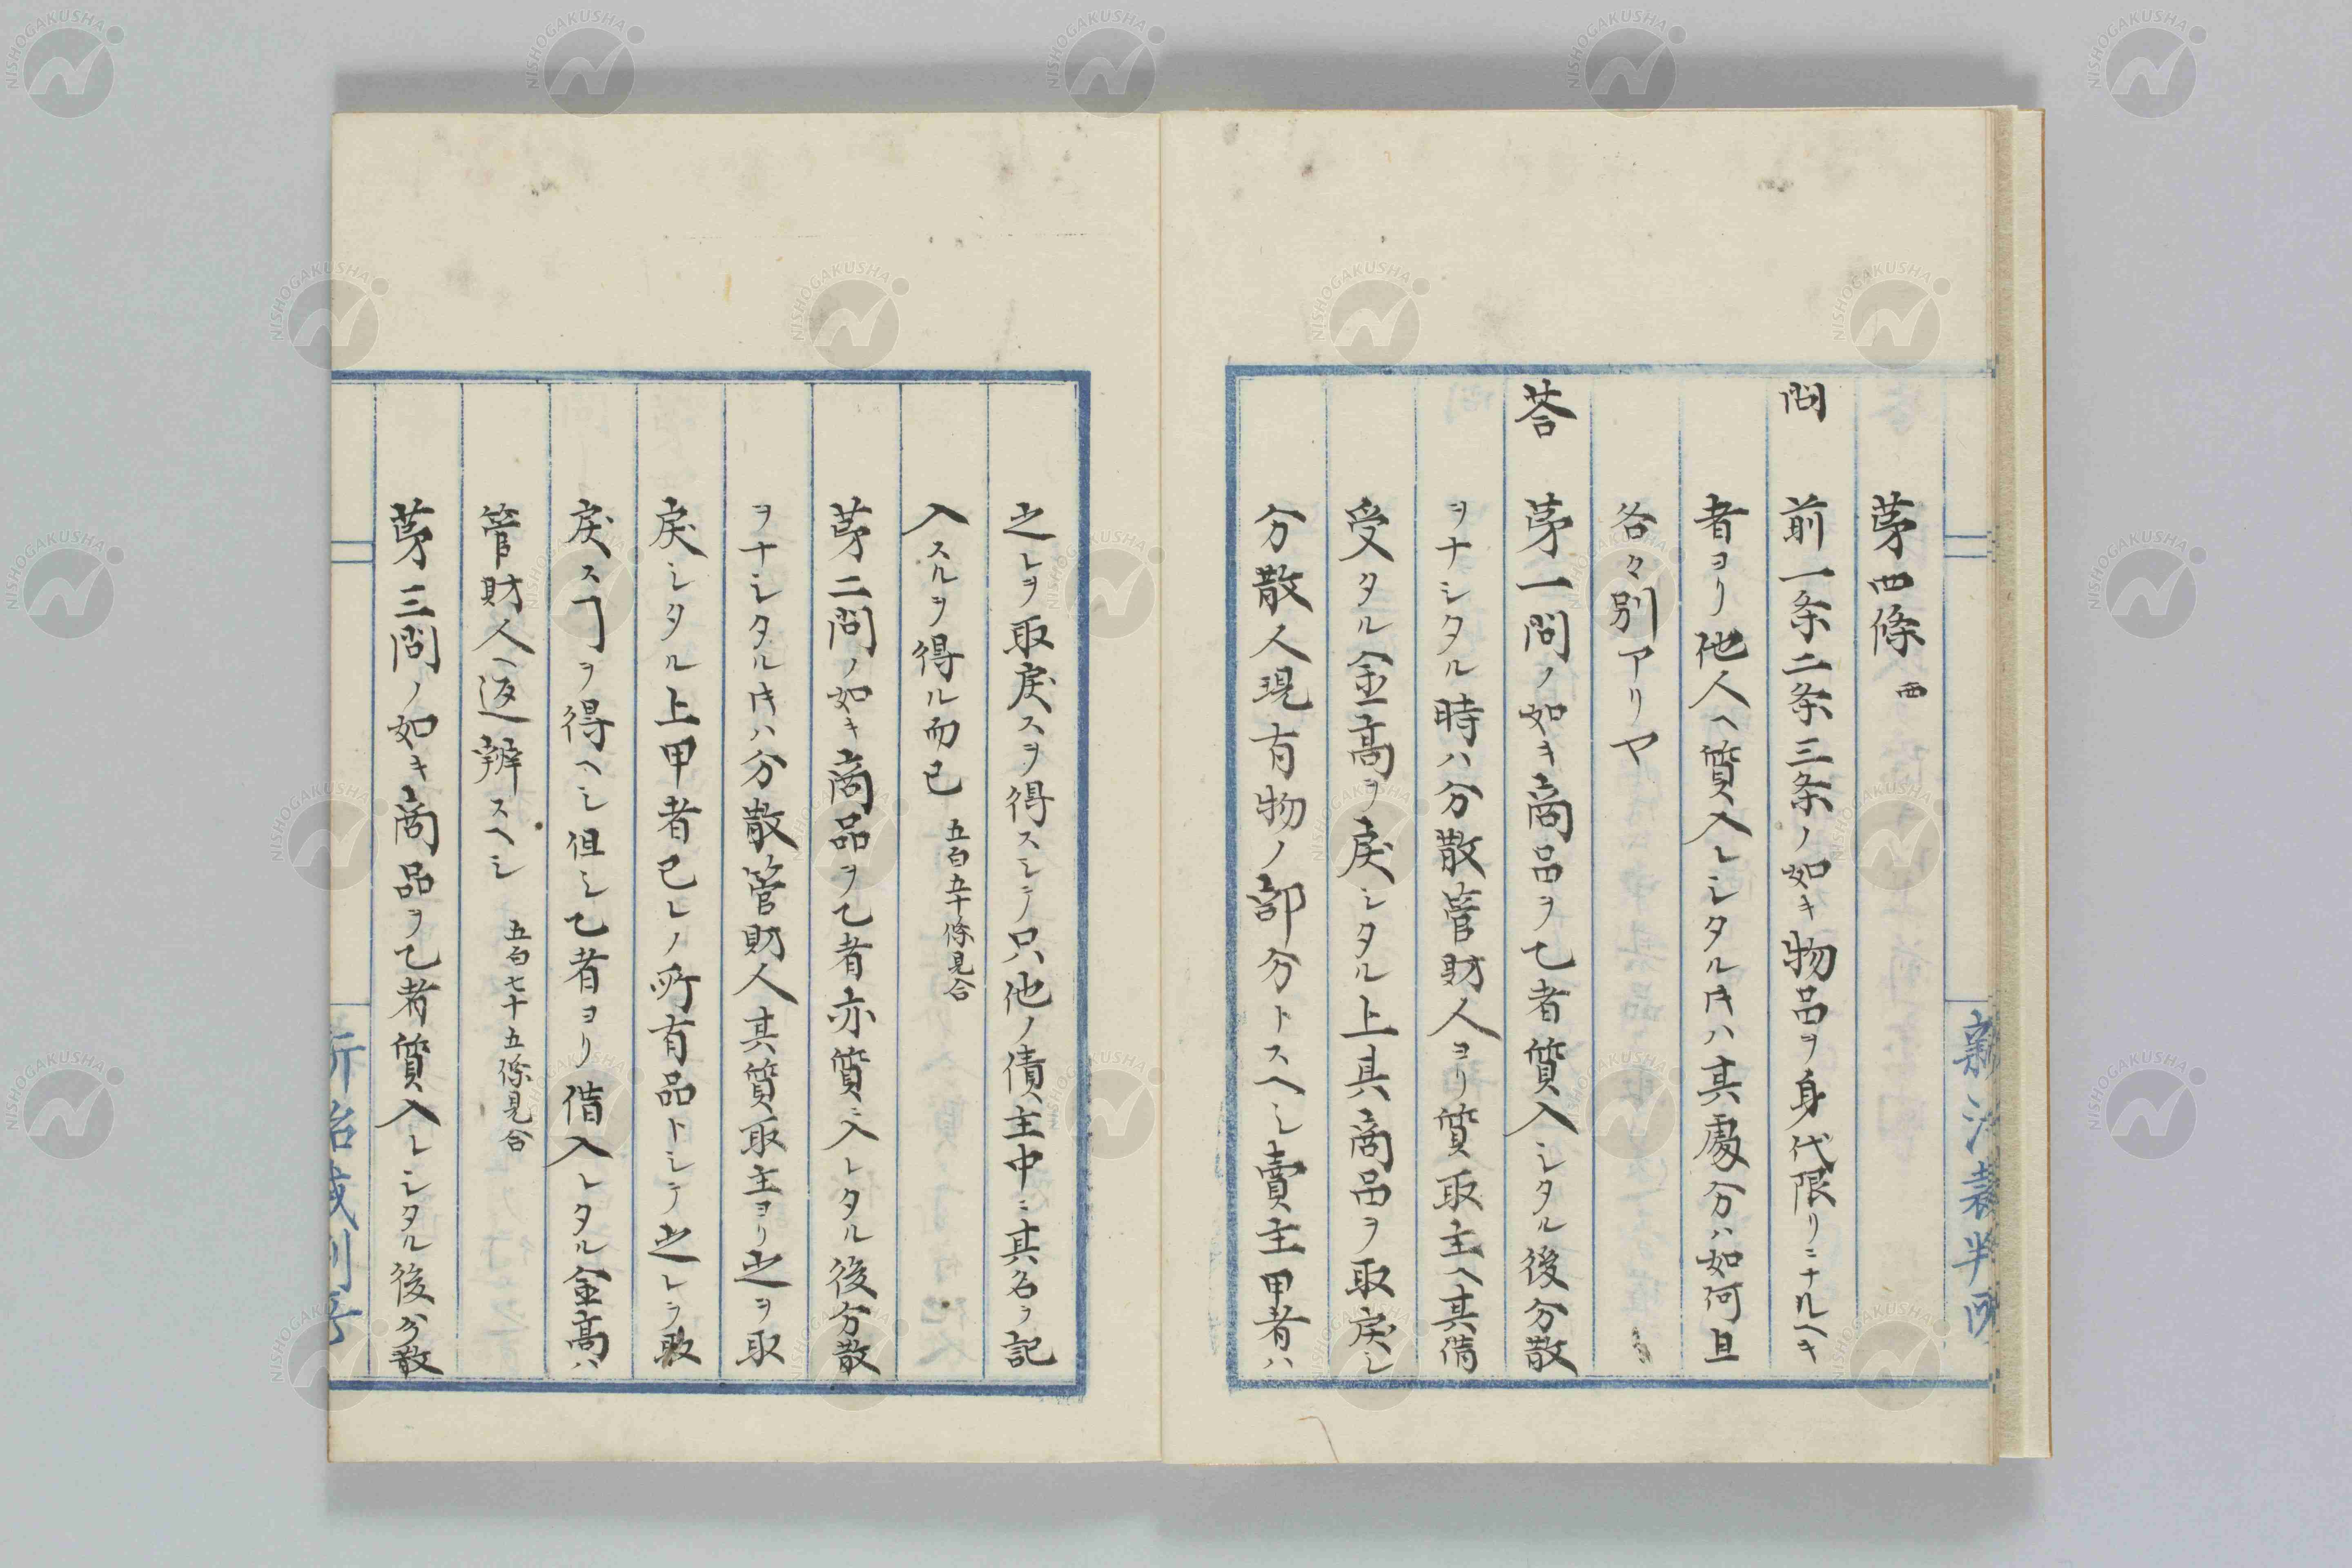 第四條 西
問 前一条二条三条ノ如キ物品ヲ身代限リニナルヘキ
者ヨリ他人ヘ質入レシタル𪜈ハ其處分ハ如何且
各々別アリヤ
答 第一問ノ如キ商品ヲ乙者質入シタル後分散
ヲナシタル時ハ分散管財人ヨリ質取主ヘ其借
受タル金高ヲ戻シタル上其商品ヲ取戻シ
分散人現有物ノ部分トスヘシ賣主甲者ハ
之レヲ取戻スヲ得スシテ只他ノ債主中ニ其名ヲ記
入スルヲ得ル而已 五百五十條見合
第二問ノ如キ商品ヲ乙者亦質ニ入レタル後分散
ヲナシタル𪜈ハ分散管財人其質取主ヨリ之ヲ取
戻シタル上甲者已レノ所有品トシテ之レヲ取
戻スヿヲ得ヘシ但シ乙者ヨリ借入レタル金高ハ
管財人ヘ返辨スヘシ 五百七十五條見合
第三問ノ如キ商品ヲ乙者質入レシタル後分散
新治裁判所
NISHOGAKUSHA